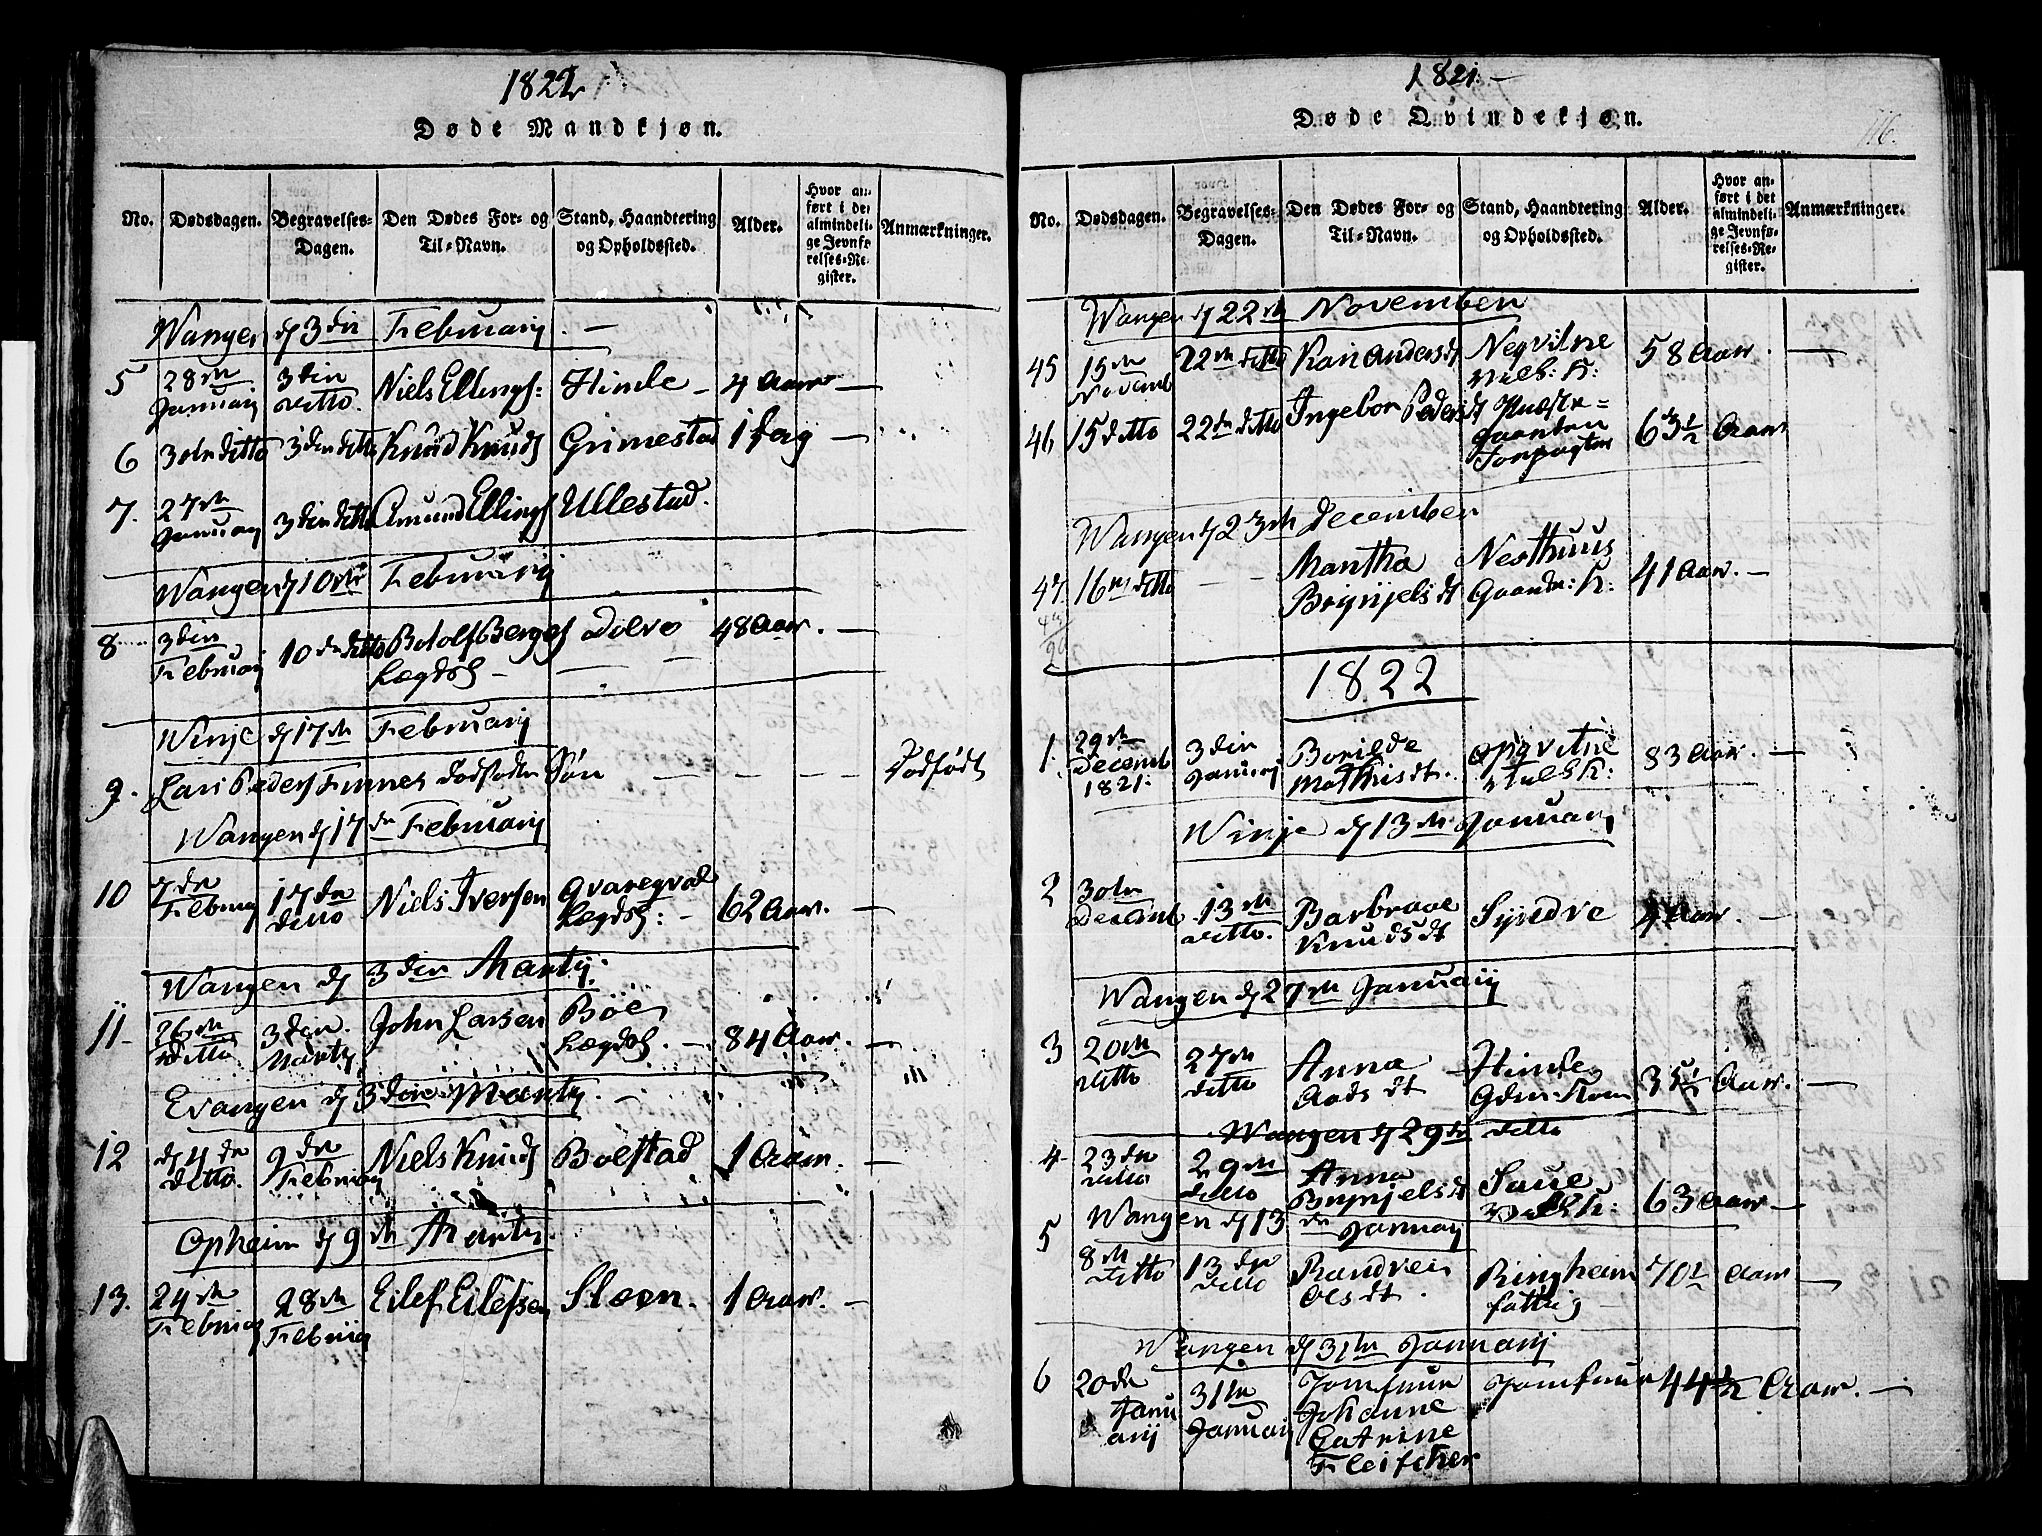 1822
Døde Mandkjøn.
No.
Dødsdagen.
Begravelses-
Dagen.
Den Dødes For- og
Til-Navn.
Stand, Haandtering
og Opholdssted.
Alder.
Hvor an-
ført i det
almindeli-
ge Jevnfø-
relses-Re-
gister.
Anmærkninger.
Wangen d 3den Februarij. —
5 28de Januarij 3den ditto. Niels Ellings: Himle — 4 Aar —
6 3die ditto 3den ditto Knud Knuds Grimestad 1 Dag —
7. 27de Januarij 3den ditto Amund Ellings Ullestad.
Wangen d 10de Februarij
8 3den Februarij 10de ditto Botolf Berges Dolve 48 Aar. —
Lægdsl —
Winje d 17de Februarij
9. Lars Peders Finnes dødfødte Søn — — — — Dødfødt
Wangen d 17de Februarij
10 7de Februarij 17de ditto Niels Iversen Qvaregval
Lægdsl: — 62 Aar. —
Wangen d 3den Martij.
11 26de ditto 3den Martij John Larsen Bøe
Lægdsl. — 84 Aar. —
Evangen d 3den Martij. —
12 d 4de ditto. 9de Februarij Niels Knuds Bolstad 1 Aar. —
Opheim d 9de Martij
13. 24de Februarij 28de Februarij Eilef Eilefsen Sloen. 1 Aar. —
1821. —
Døde Qvindekjøn.
116.
No.
Dødsdagen.
Begravelses-
Dagen.
Den Dødes For- og
Til-Navn.
Stand, Haandtering
og Opholdssted.
Alder.
Hvor an-
ført i det
almindeli-
ge Jevnfø-
relses-Re-
gister.
Anmærkninger.
Wangen d 22de November
45 15de Novemb 22de ditto Kari Andersdt Neqvitne 58 Aar. —
46 15 ditto 22de ditto Ingebor Pedersdt 63½ Aar
Wangen d 23de December
47. 16de ditto — — Martha
Brynjelsdt Nesthuus
Gaardm: K: 41 Aar. —
43
90
1822
1. 29de
Decemb
1821. 3den
Januarij Borilde
Mathisdt. Opqvitne 83 Aar. —
Winje d 13de Januarij
2 30te
Decemb 13de
ditto. Barbraae
Knudsdt Syndve Aar. —
Wangen d 27de Januarij
3 20de
ditto 27de
ditto Anna
Aadsdt Himle 35½ Aar. —
Wangen d 29de ditto
4 23de
ditto 29de
ditto Anna
Brynjelsdt Saue 63 Aar —
Wangen d 13de Januarij
5 8de
ditto 13de
ditto Randvei
Olsdt. Ringheim
fattig — 70½ Aar —
Wangen d 31te Januarij
6 20de
Janu
arij 31te
Januarij Jomfruur
Johanne
Catrine
Fleischer Jomfruur 44½ Aar. —